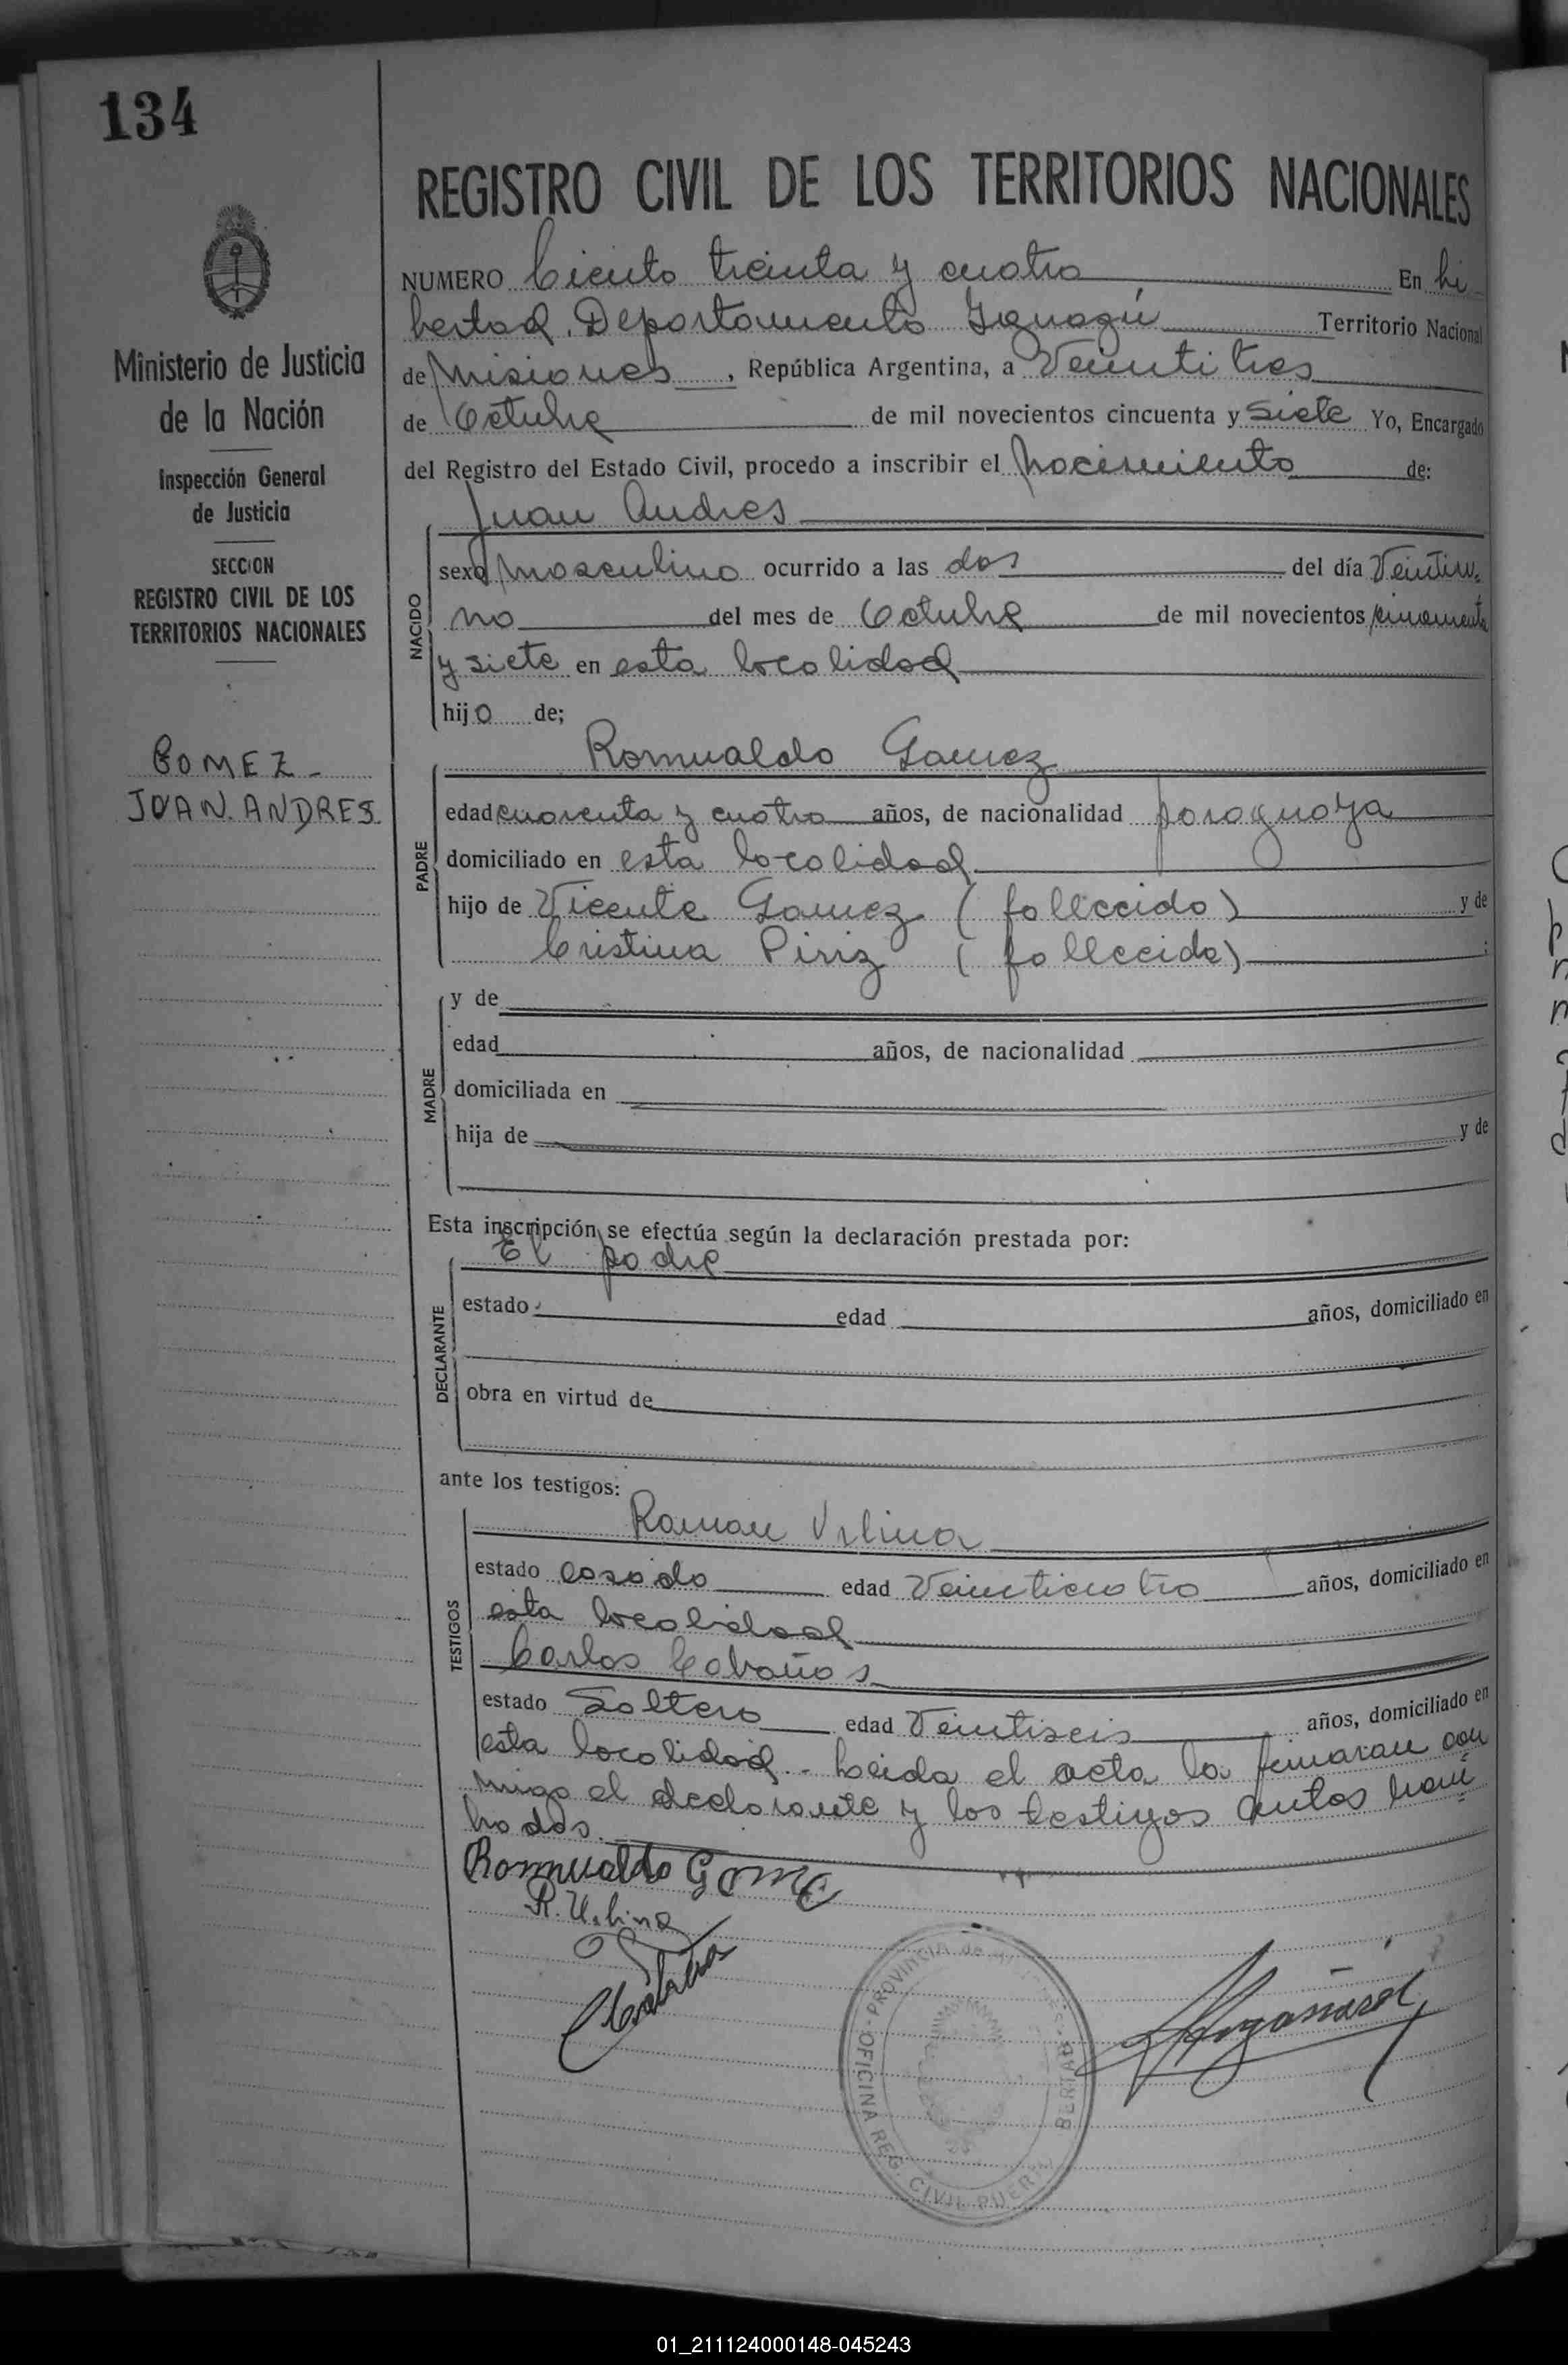 134
REGISTRO CIVIL DE LOS TERRITORIOS NACIONALES
Ministerio de Justicia
de la Nación
Inspección General
de Justicia
SECCION
REGISTRO CIVIL DE LOS
TERRITORIOS NACIONALES
GOMEZ -
JUAN. ANDRES.
NUMERO Ciento treinta y cuatro En Li
bertad. Departamento Iguazú Territorio Nacional
de Misiones, República Argentina, a Veintitres
de Octubre de mil novecientos cincuenta y siete Yo, Encargado
del Registro del Estado Civil, procedo a inscribir el nacimiento de:
Juan Andres
NACIDO
sexo masculino ocurrido a las dos del día Veintiu-
no del mes de Octubre de mil novecientos cincuenta
y siete en esta localidad
hijo de;
Romualdo Gomez
PADRE
edad cuarenta y cuatro años, de nacionalidad paraguaya
domiciliado en esta localidad
hijo de Vicente Gomez (fallecido) y de
Cristina Piriz (fallecida) ;
MADRE
y de
edad años, de nacionalidad
domiciliada en
hija de y de
Esta inscripción se efectúa según la declaración prestada por:
El padre
DECLARANTE
estado edad años, domiciliado en
obra en virtud de
ante los testigos:
Ramon
TESTIGOS
estado casado edad Veinticuatro años, domiciliado en
esta localidad
Carlos Cabañas
estado Soltero edad Veintiseis años, domiciliado en
esta localidad. - Leida el acta la firmaran con
migo el declarante y los testigos antes nom
brados.
Romualdo Gome
OFICINA REG. CIVIL PUERTO LIBERTAD - PROVINCIA de MISIONES
01_211124000148-045243